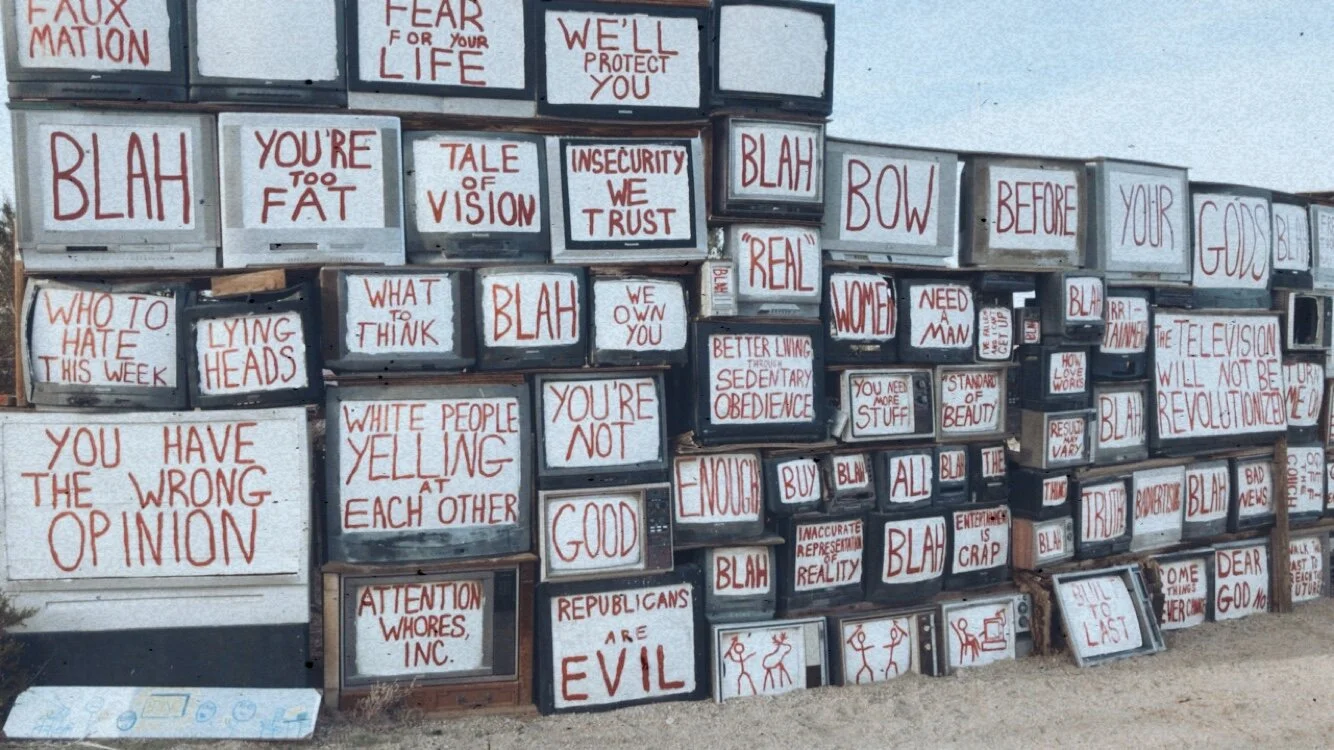 FAUX
MATION
FEAR
FOR YOUR
LIFE
WE'LL
PROTECT
YOU
BLAH
YOU'RE
TOO
FAT
TALE
OF
VISION
INSECURITY
WE
TRUST
BLAH
BOW
BEFORE
YOUR
GODS
BLAH
"REAL"
BLAH
WHO TO
HATE
THIS WEEK
LYING
HEADS
WHAT
TO
THINK
BLAH
WE
OWN
YOU
WOMEN
NEED
A
MAN
BLAH
BETTER LIVING
THROUGH
SEDENTARY
OBEDIENCE
YOU NEED
MORE
STUFF
"STANDARD
OF
BEAUTY
HOW
LOVE
WORKS
THE TELEVISION
WILL NOT BE
REVOLUTIONIZED
RESULTS
MAY
VARY
BLAH
YOU HAVE
THE WRONG
OPINION
WHITE PEOPLE
YELLING
AT
EACH OTHER
YOU'RE
NOT
GOOD
ENOUGH
BUY
BLAH
ALL
BLAH
THE
THING
TRUTH
BLAH
BAD
NEWS
BLAH
INACCURATE
REPRESENTATION
OF
REALITY
BLAH
IS
CRAP
BLAH
ATTENTION
WHORES,
INC.
REPUBLICANS
ARE
EVIL
TO
LAST
DEAR
GOD NO